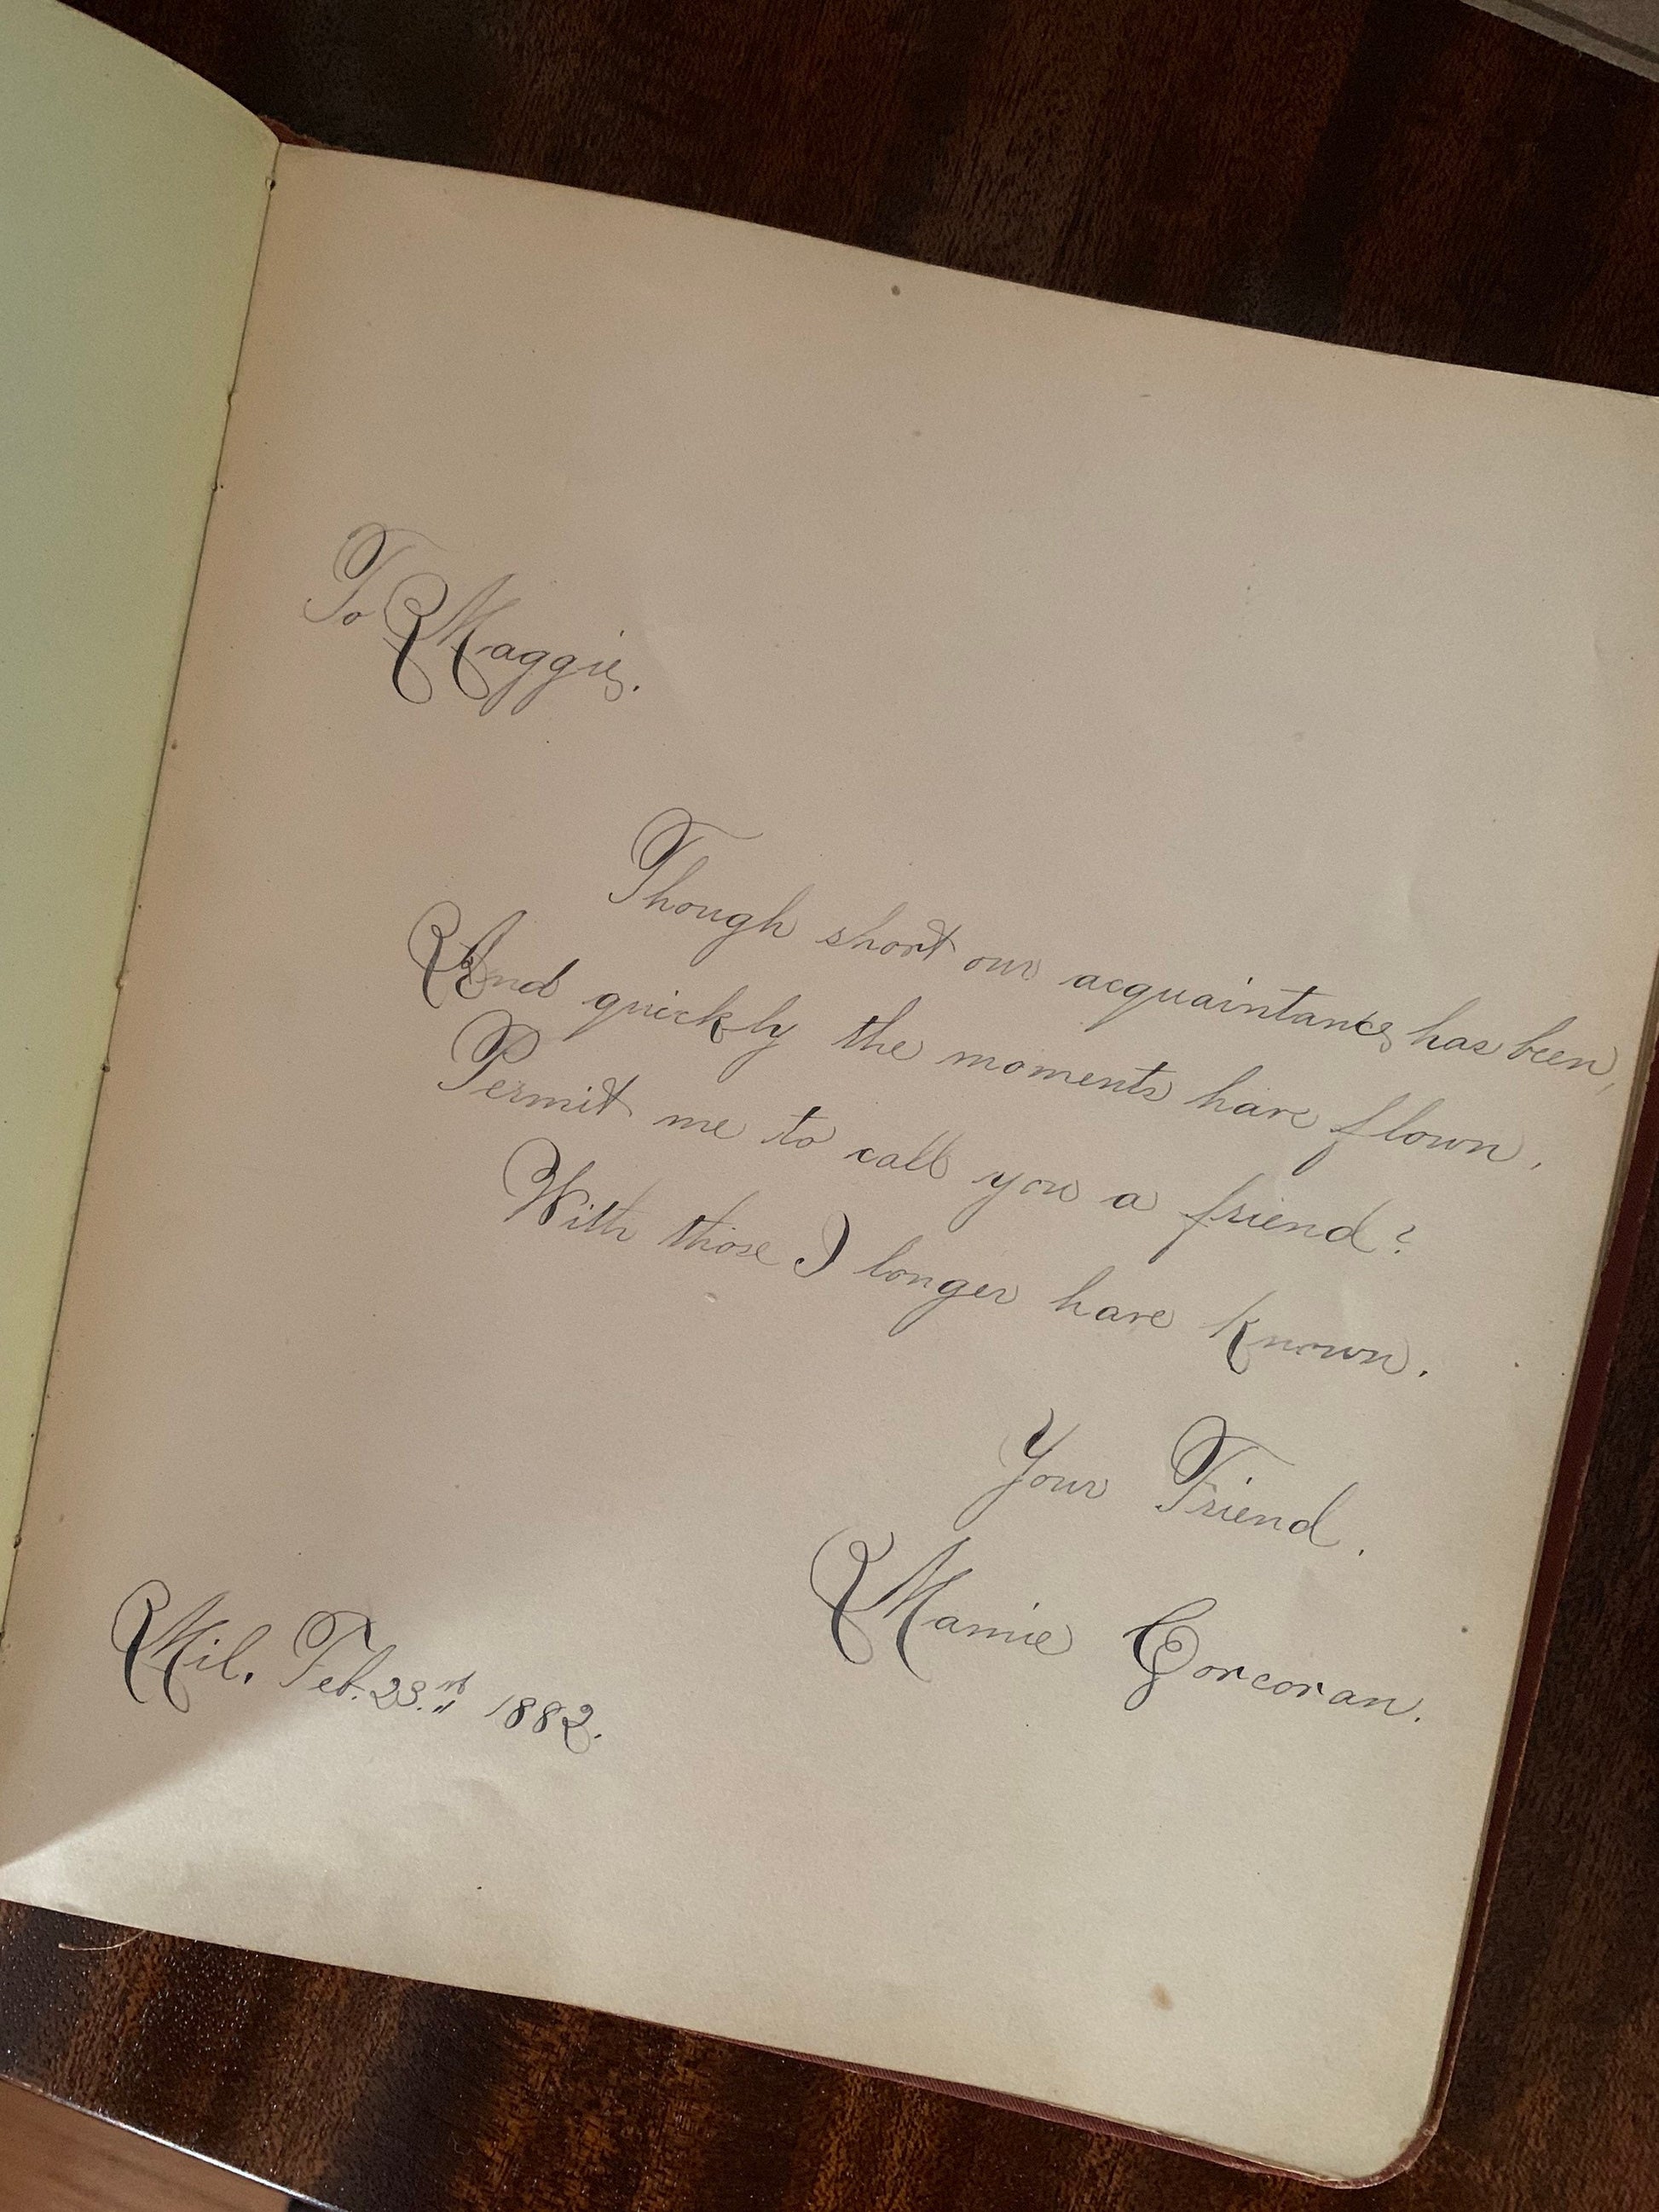 To Maggie.
Though short our acquaintance has been,
And quickly the moments have flown,
Permit me to call you a friend?
With those I longer have known.
Your Friend.
Mamie Corcoran.
Mil. Feb. 23.rd 1882.